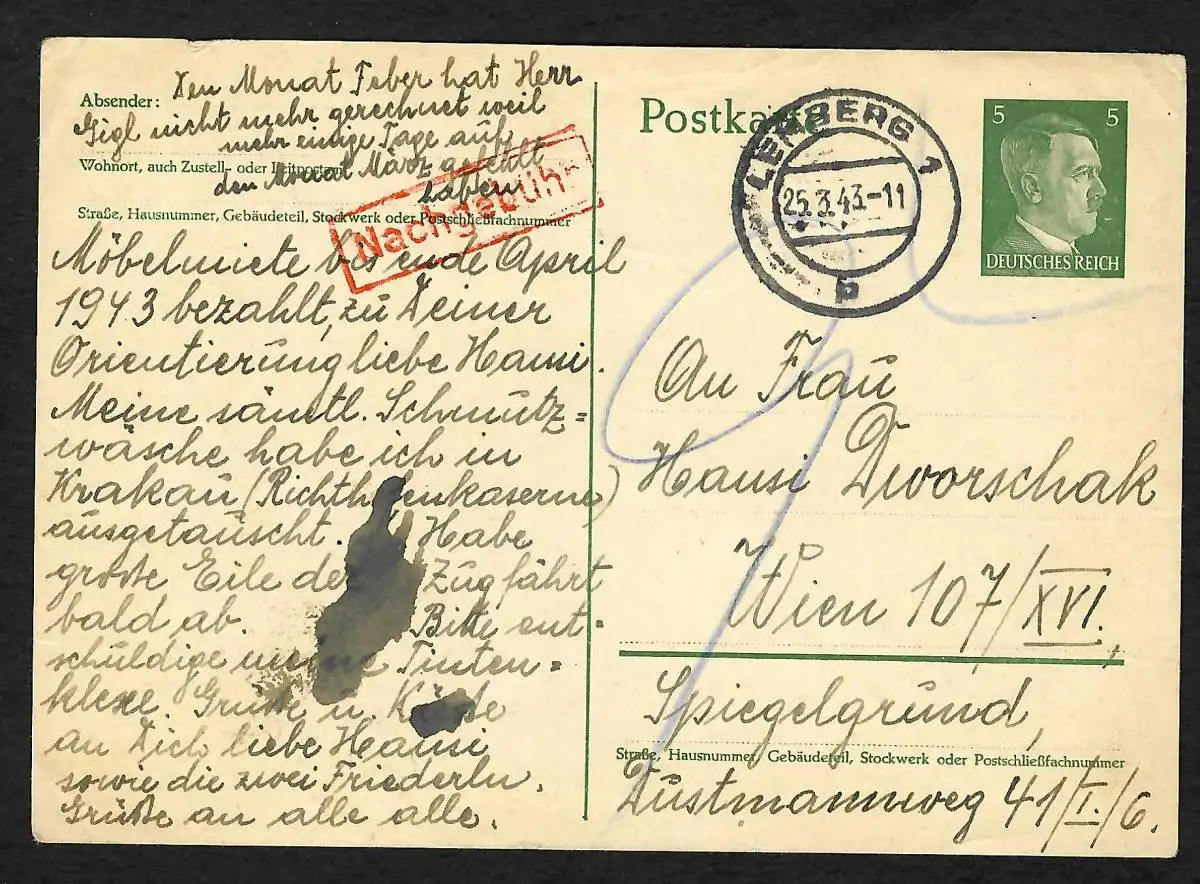 Den Monat Feber hat Herr
Absender:
Gigl nicht mehr gerechnet weil
mehr einige Tage auf
Wohnort, auch Zustell- oder Leitpostamt
den Monat März gefehlt
haben
Straße, Hausnummer, Gebäudeteil, Stockwerk oder Postschließfachnummer
Nachgebühr
Möbelmiete bis ende April
1943 bezahlt, zu Deiner
Orientierung liebe Hansi.
Meine sämtl. Schmutz=
wäsche habe ich in
Krakau (Richthofenkaserne)
ausgetauscht. Habe
große Eile der Zug fährt
bald ab. Bitte ent-
schuldige meine Tinten=
klexe. Grüße u. Küsse
an Dich liebe Hansi
sowie die zwei Friederln.
Grüße an alle alle.
Postkarte
LEMBERG 1
25.3.43-11
b
5 5
DEUTSCHES REICH
An Frau
Hansi Dworschak
Wien 107/XVI.,
Spiegelgrund,
Straße, Hausnummer, Gebäudeteil, Stockwerk oder Postschließfachnummer
Zustmannweg 41/I./6.